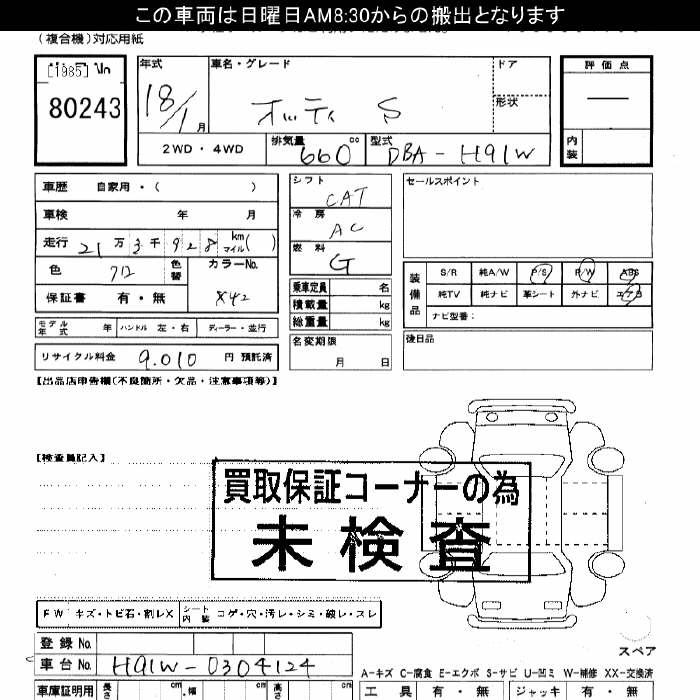 この車両は日曜日AM8:30からの搬出となります
(複合機)対応用紙
[1985]
80243
年式 車名・グレード ドア 評価点
18/1月 オッティ S 形状 —
2WD・4WD 排気量 660 cc 型式 DBA-H91W 内装
車歴 自家用・( )
シフト CAT
セールスポイント
車検 年 月
冷房 AC
走行 21万3千928 km マイル( )
燃料 G
色 色替 カラーNo.
X42
保証書 有・無
乗車定員 名
積載量 kg
総重量 kg
装備品 S/R 純A/W P/S P/W ABS
純TV 純ナビ 革シート 外ナビ エアB
ナビ型番:
モデル年式 年 ハンドル 左・右 ディーラー・並行
名変期限 月 日
後日品
リサイクル料金 9,010 円 預託済
【出品店申告欄(不良箇所・欠品・注意事項等)】
【検査員記入】
買取保証コーナーの為
未検査
FW キズ・トビ石・割レX シート内装 コゲ・穴・汚レ・シミ・破レ・スレ
登録No.
スペア
車台No. H91W-0304124
A-キズ C-腐食 E-エクボ S-サビ U-凹ミ W-補修 XX-交換済
車庫証明用 長さ cm 幅 cm 高さ cm
工具 有・無 ジャッキ 有・無